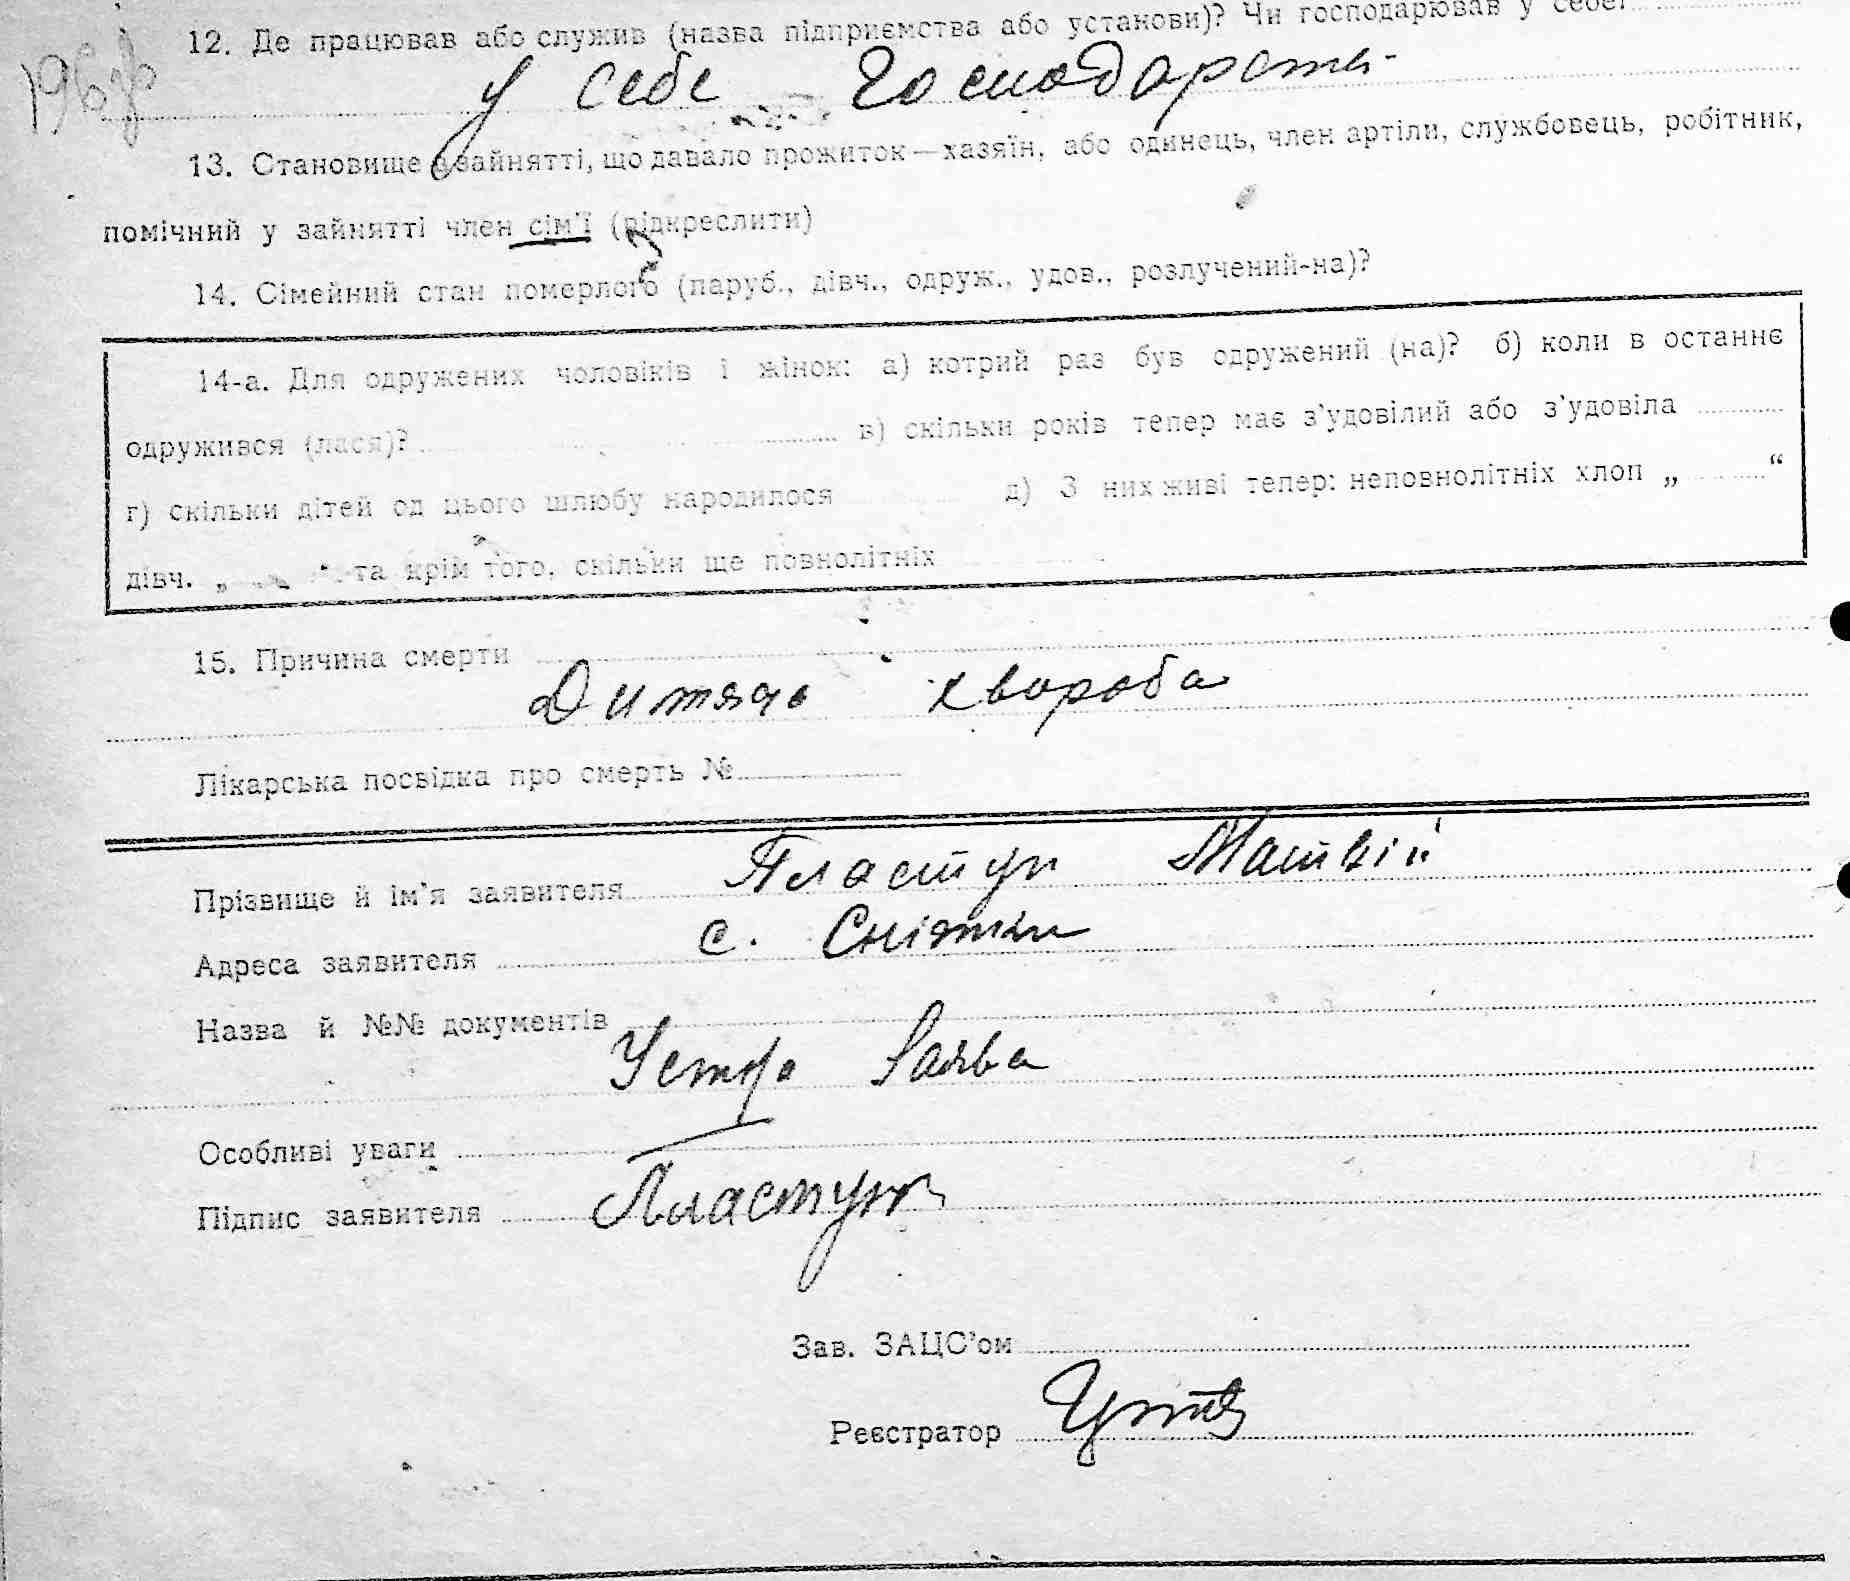 12. Де працював або служив (назва підприємства або установи)? Чи господарював у себе?
у себе Господарств
13. Становище в зайнятті, що давало прожиток—хазяїн, або одинець, член артіли, службовець, робітник,
помічний у зайнятті член сім'ї (підкреслити)
14. Сімейний стан померлого (паруб., дівч., одруж., удов., розлучений-на)?
14-а. Для одружених чоловіків і жінок: а) котрий раз був одружений (на)? б) коли в останнє
одружився (лася)? в) скільки років тепер має з'удовілий або з'удовіла
г) скільки дітей од цього шлюбу народилося д) З них живі тепер: неповнолітніх хлоп „ “
дівч. „ “ та крім того, скільки ще повнолітніх
15. Причина смерти
Дитяча хвороба
Лікарська посвідка про смерть №
Прізвище й ім'я заявителя Пластун Матвій
Адреса заявителя с. Снітки
Назва й №№ документів
Устна Заява
Особливі уваги
Підпис заявителя Пластун
Зав. ЗАЦС'ом
Реєстратор